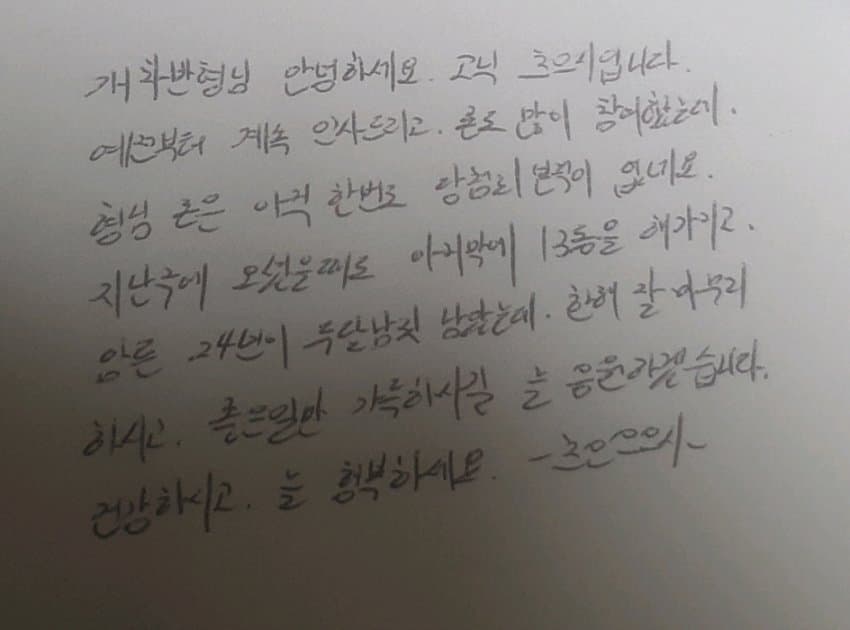 개화반형님 안녕하세요. 고닉 초으시입니다.
예전부터 계속 인사드리고. 론도 많이 참여했는데.
형님 론은 아직 한번도 당첨된적이 없네요.
지난주에 오셨을때도 마지막에 13동을 해가지고.
암튼 24년이 두달남짓 남았는데. 한해 잘 마무리
하시고. 좋은일만 가득하시길 늘 응원하겠습니다.
건강하시고. 늘 행복하세요. -초으시-